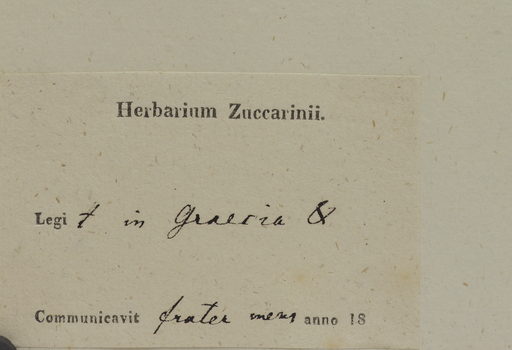 Herbarium Zuccarinii.
Legit in Graecia &
Communicavit frater meus anno 18